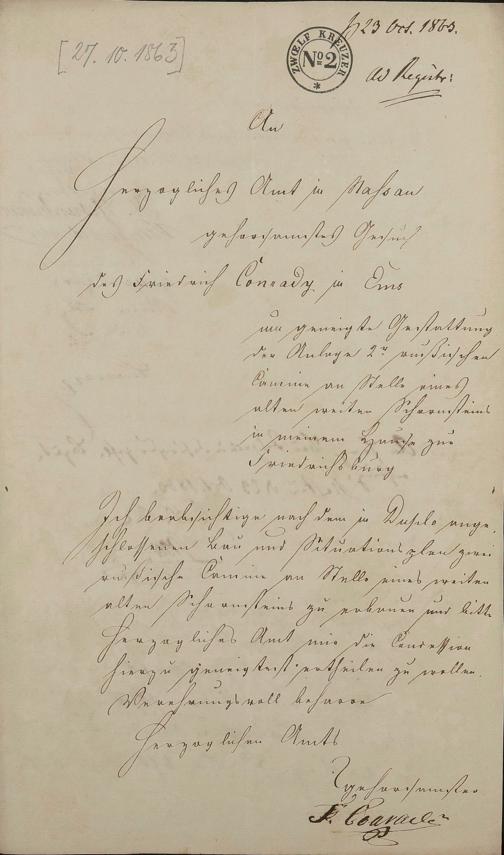 [27. 10. 1863]
23 Oct. 1863.
ZWŒLF KREUZER
No 2
ad Registr:
An
Herzogliches Amt in Nassau
gehorsamstes Gesuch
des Friedrich Conrady in Ems
um geneigte Gestattung
der Anlage 2er rußischen
Camine an Stelle eines
alten weiten Schornsteins
in meinem Hause zur
Friedrichsburg
Ich beabsichtige nach dem in Duplo ange-
schlossenen Bau und Situationsplan zwei
rußische Camine an Stelle eines weiten
alten Schornsteins zu erbauen und bitte
Herzogliches Amt mir die Concession
hierzu geneigtest ertheilen zu wollen.
Verehrungsvoll beharre
Herzoglichen Amts
gehorsamster
F. Conrady